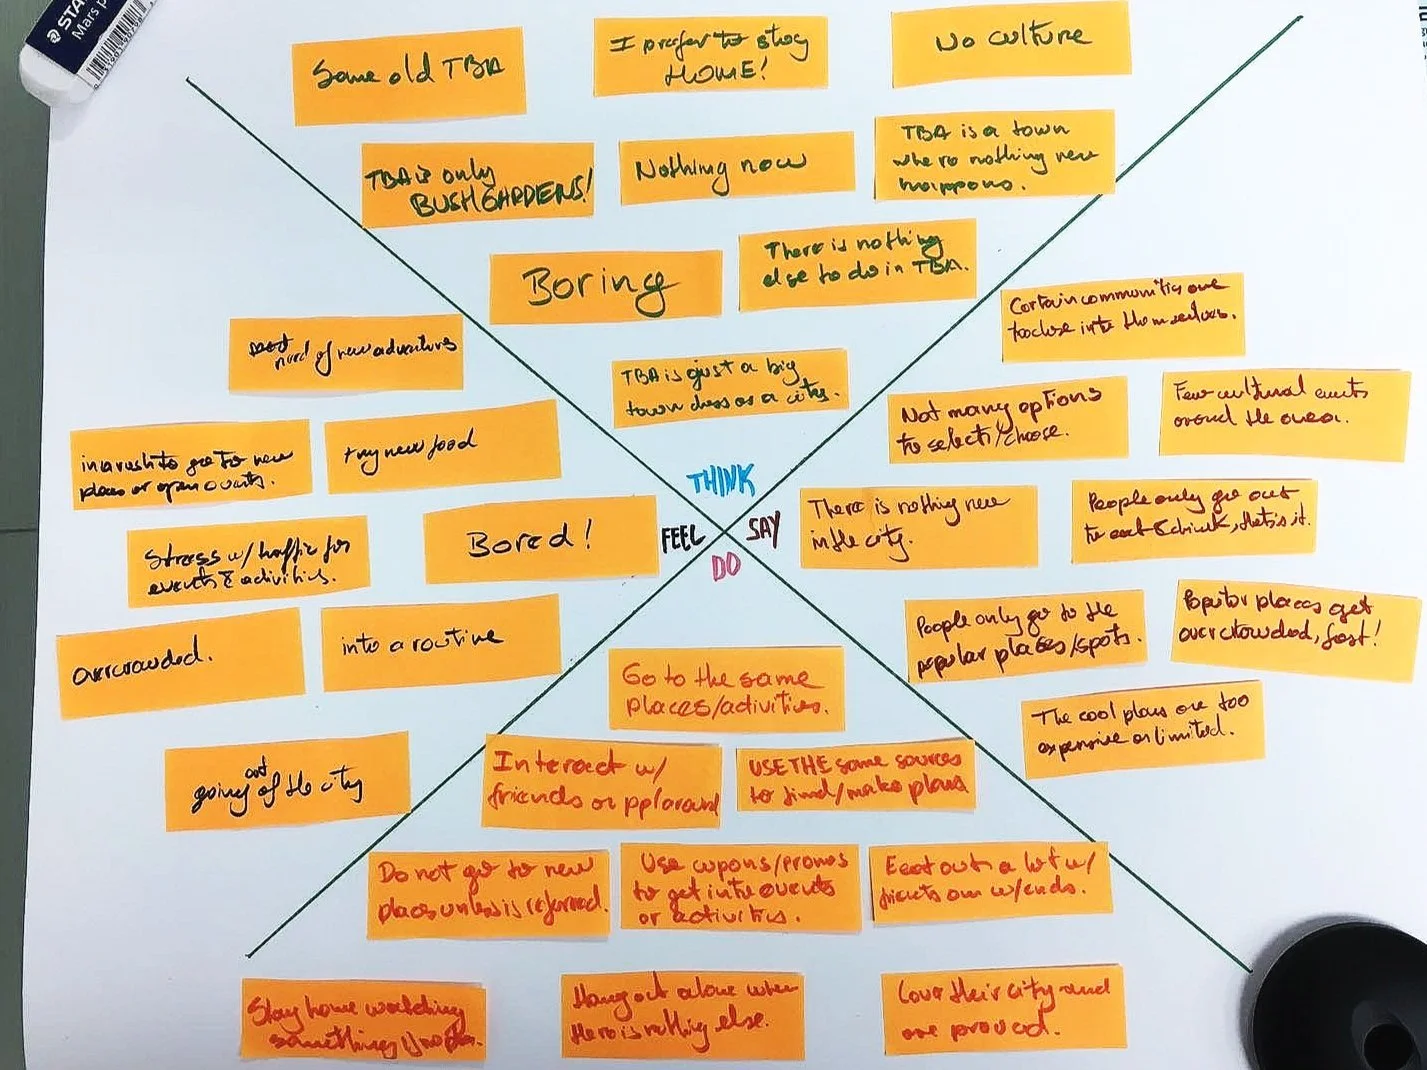 STA
Mars p
Same old TBA
I prefer to stay
HOME!
No culture
TBA is only
BUSHGARDENS!
Nothing new
TBA is a town
where nothing new
happens.
Boring
There is nothing
else to do in TBA.
TBA is just a big
town dress as a city.
need of new adventures
try new food
in a rush to go to new
places or open events.
Stress w/ traffic for
events & activities.
Bored!
overcrowded.
into a routine
going out of the city
THINK
FEEL
SAY
DO
Certain communities are
to close into themselves.
Not many options
to select/choose.
Few cultural events
around the area.
There is nothing new
in the city.
People only go out
to eat & drink, that's it.
People only go to the
popular places/spots.
Popular places get
overcrowded, fast!
The cool plans are too
expensive or limited.
Go to the same
places/activities.
Interact w/
friends or ppl around
USE THE same sources
to find/make plans
Do not go to new
places unless is referred.
Use cupons/promos
to get into events
or activities.
Eeat out a lot w/
friends on w/ends.
Stay home watching
something if no plan.
Hang out alone when
there is nothing else.
Love their city and
are proud.